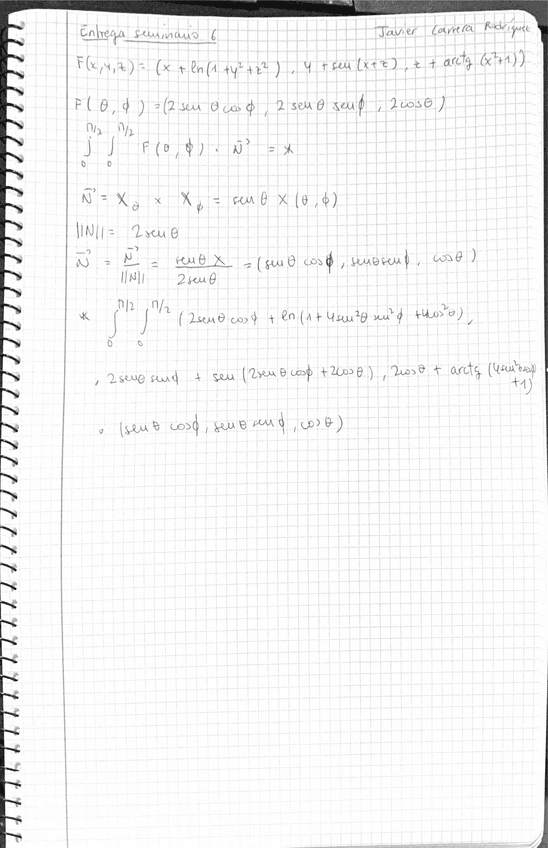 Entrega seminario 6
Javier Carrera Rodríguez
F(x,y,z) = (x + ln(1+y²+z²), y + sen(x+z), z + arctg(x²+1))
F(θ, φ) = (2 sen θ cos φ, 2 sen θ sen φ, 2cos θ)
∫₀^π/2 ∫₀^π/2 F(θ, φ) · N⃗ = *
N⃗ = X_θ × X_φ = sen θ X(θ, φ)
||N|| = 2 sen θ
N⃗ = N⃗/||N|| = sen θ X/2 sen θ = (sen θ cos φ, sen θ sen φ, cos θ)
* ∫₀^π/2 ∫₀^π/2 (2 sen θ cos φ + ln(1+4sen²θ sen²φ + 4cos²θ),
, 2 sen θ sen φ + sen(2 sen θ cos φ + 2cos θ), 2cos θ + arctg(4sen²θ
+1)
· (sen θ cos φ, sen θ sen φ, cos θ)